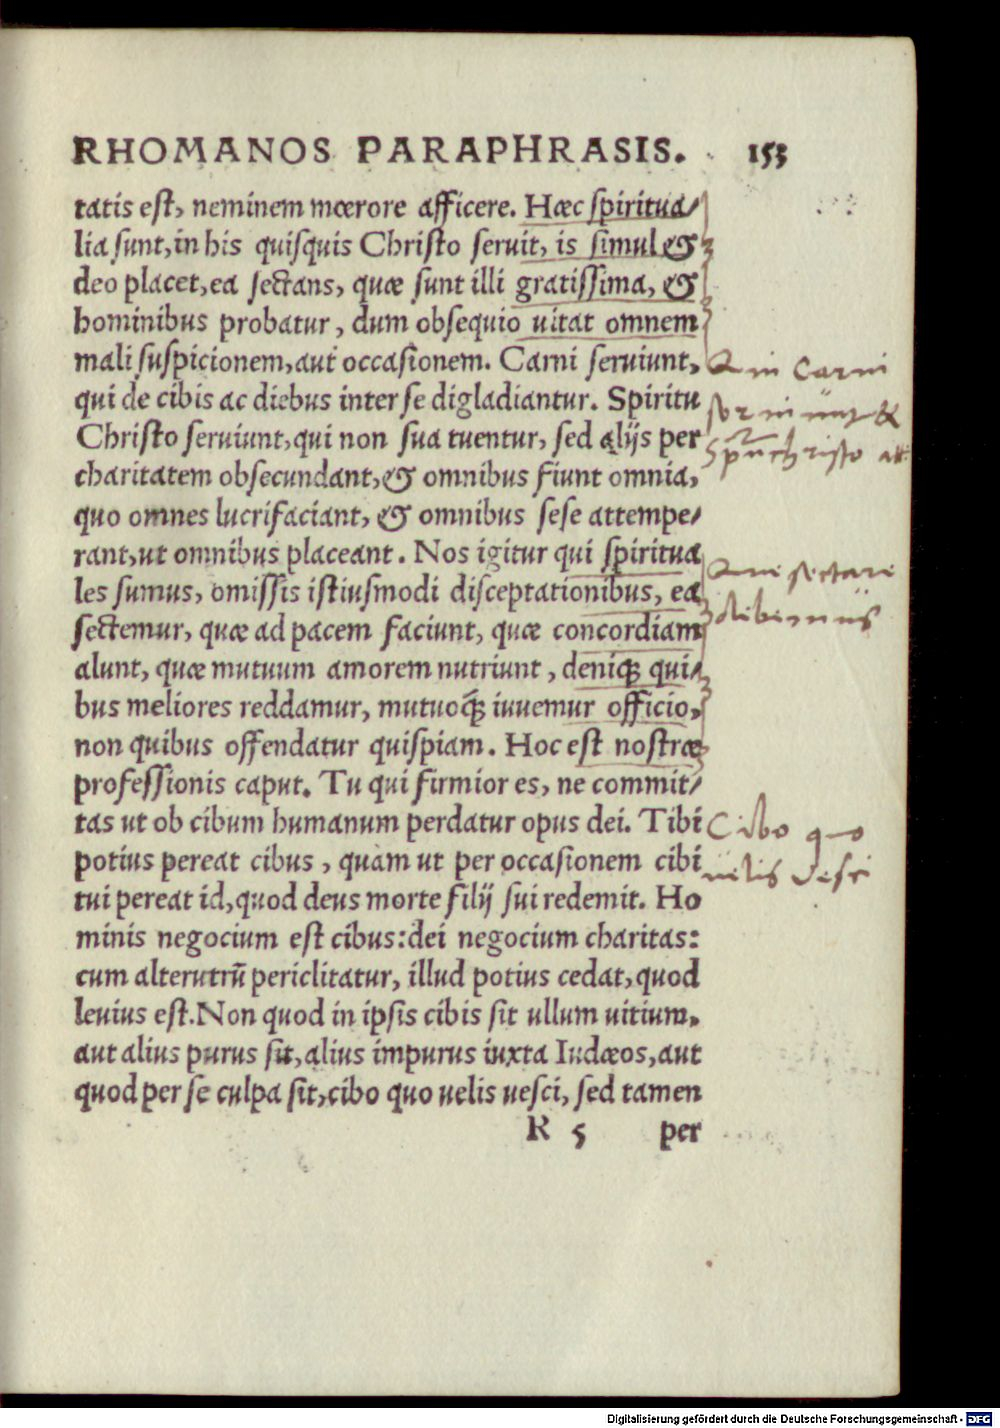 RHOMANOS PARAPHRASIS. 153
tatis est, neminem mœrore afficere. Hæc spiritua/
lia sunt, in his quisquis Christo seruit, is simul &
deo placet, ea sectans, quæ sunt illi gratissima, &
hominibus probatur, dum obsequio uitat omnem
mali suspicionem, aut occasionem. Carni seruiunt,
qui de cibis ac diebus inter se digladiantur. Spiritu
Christo seruiunt, qui non sua tuentur, sed alijs per
charitatem obsecundant, & omnibus fiunt omnia,
quo omnes lucrifaciant, & omnibus sese attempe/
rant, ut omnibus placeant. Nos igitur qui spiritua
les sumus, omissis istiusmodi disceptationibus, ea
sectemur, quæ ad pacem faciunt, quæ concordiam
alunt, quæ mutuum amorem nutriunt, deniqꝫ qui/
bus meliores reddamur, mutuoqꝫ iuuemur officio,
non quibus offendatur quispiam. Hoc est nostræ
professionis caput. Tu qui firmior es, ne commit/
tas ut ob cibum humanum perdatur opus dei. Tibi
potius pereat cibus, quàm ut per occasionem cibi
tui pereat id, quod deus morte filij sui redemit. Ho
minis negocium est cibus: dei negocium charitas:
cum alterutrũ periclitatur, illud potius cedat, quod
leuius est. Non quod in ipsis cibis sit ullum uitium,
aut alius purus sit, alius impurus iuxta Iudæos, aut
quod per se culpa sit, cibo quo uelis uesci, sed tamen
R 5 per
Qui Carni
seruiunt &
christo
Que sectare
debemus
Cibo quo
uelis vesci
Digitalisierung gefördert durch die Deutsche Forschungsgemeinschaft - DFG